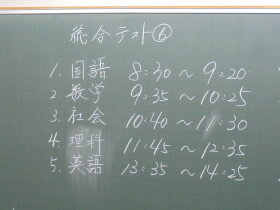 総合テスト⑥
1. 国語 8:30 ～ 9:20
2. 数学 9:35 ～ 10:25
3. 社会 10:40 ～ 11:30
4. 理科 11:45 ～ 12:35
5. 英語 13:35 ～ 14:25